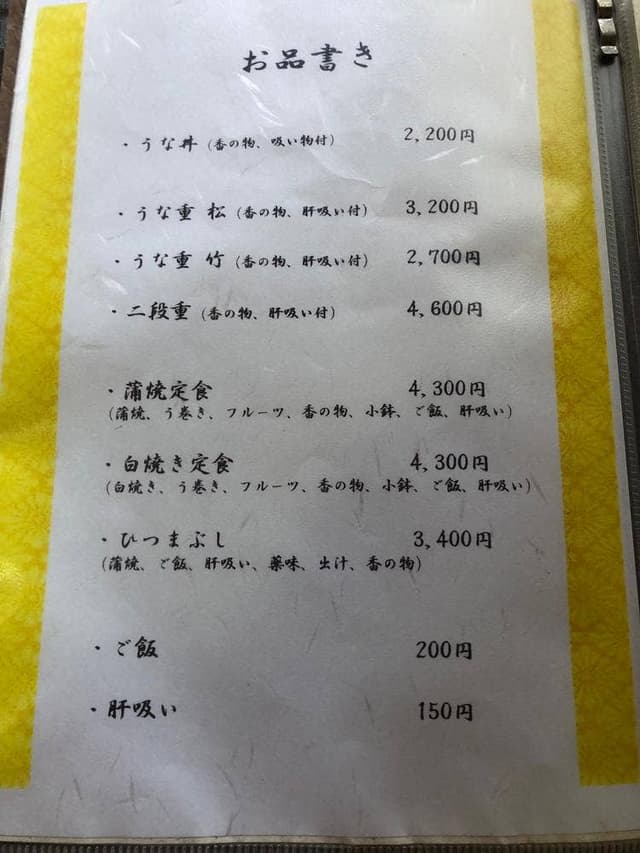 お品書き
・うな丼(香の物、吸い物付) 2,200円
・うな重 松(香の物、肝吸い付) 3,200円
・うな重 竹(香の物、肝吸い付) 2,700円
・二段重(香の物、肝吸い付) 4,600円
・蒲焼定食 4,300円
(蒲焼、う巻き、フルーツ、香の物、小鉢、ご飯、肝吸い)
・白焼き定食 4,300円
(白焼き、う巻き、フルーツ、香の物、小鉢、ご飯、肝吸い)
・ひつまぶし 3,400円
(蒲焼、ご飯、肝吸い、薬味、出汁、香の物)
・ご飯 200円
・肝吸い 150円